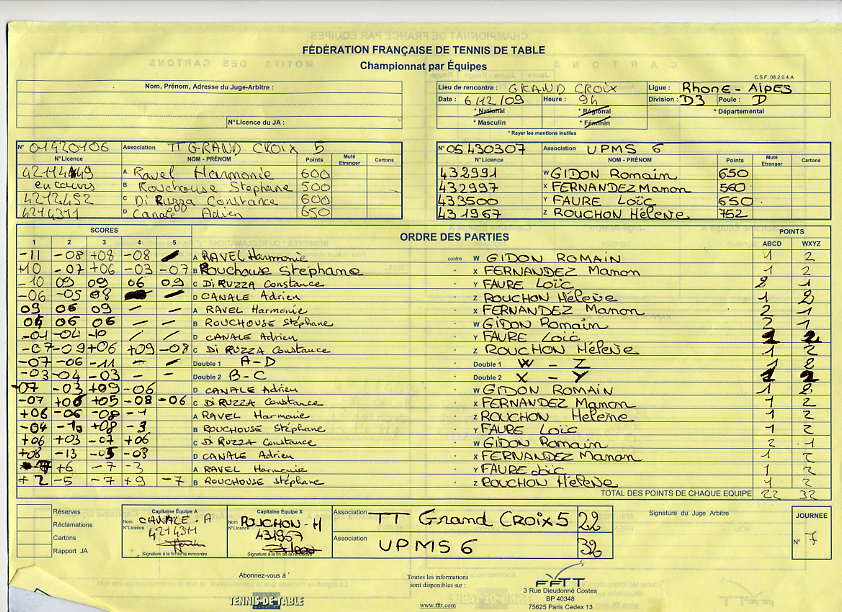 FÉDÉRATION FRANÇAISE DE TENNIS DE TABLE
Championnat par Équipes
C.S.F. 08.2.0.4.A
Nom, Prénom, Adresse du Juge-Arbitre :
N°Licence du JA :
Lieu de rencontre : GRAND CROIX Ligue : Rhone - Alpes
Date : 6/12/09 Heure : 9h Division : D3 Poule : D
* National * Régional * Départemental
* Masculin * Féminin
* Rayer les mentions inutiles
N° 01420106 Association TT GRAND CROIX 5
N°Licence NOM - PRÉNOM Points Muté Etranger Cartons
A Ravel Harmonie 600
en cours B Rouchouse Stephane 500
4212492 C Di Ruzza Constance 600
4214311 D Canale Adrien 650
N° 05430307 Association UPMS 6
N°Licence NOM - PRÉNOM Points Muté Etranger Cartons
432991 W GIDON Romain 650
432997 X FERNANDEZ Manon 560
433500 Y FAURE Loïc 650
431967 Z ROUCHON Hélène 752
SCORES ORDRE DES PARTIES POINTS
1 2 3 4 5 ABCD WXYZ
-11 -08 +08 -08 A RAVEL Harmonie contre W GIDON ROMAIN 1 2
+10 -07 +06 -03 -07 B Rouchouse Stephane - X FERNANDEZ Manon 1 2
-10 09 09 06 09 C Di RUZZA Constance - Y FAURE Loïc 2 1
-06 -05 08 D CANALE Adrien - Z ROUCHON Hélène 1 2
09 06 09 - - A RAVEL Harmonie - X FERNANDEZ Manon 2 1
06 06 06 - / B ROUCHOUSE Stéphane - W GIDON Romain 2 1
-01 -04 -10 / / D CANALE Adrien - Y FAURE Loïc 1 2
-07 -09 +06 +09 -08 C Di RUZZA Constance - Z ROUCHON Hélène 1 2
-07 -06 -11 - / Double 1 A-D - Double 1 W - Z 1 2
-03 -04 -03 - - Double 2 B-C - Double 2 X - Y 1 2
-07 -03 +09 -06 D CANALE Adrien - W GIDON ROMAIN 1 2
-07 +06 +05 -08 -06 C Di RUZZA Constance - X FERNANDEZ Manon 1 2
+06 -06 -08 -1 A RAVEL Harmonie - Z ROUCHON Helene 1 2
-04 -08 -3 B ROUCHOUSE Stéphane - Y FAURE Loïc 1 2
+06 +03 -07 +06 C Di RUZZA Constance - W GIDON Romain 2 1
+08 -13 -03 D CANALE Adrien - X FERNANDEZ Manon 1 2
+6 -7 -3 A RAVEL Harmonie - Y FAURE Loïc 1 2
+2 -5 -7 +9 -7 B ROUCHOUSE Stéphane - Z ROUCHON Helene 1 2
TOTAL DES POINTS DE CHAQUE EQUIPE 22 32
Réserves
Réclamations
Cartons
Rapport JA
Capitaine Équipe A
Nom CANALE - A
N°Licence 4214311
Signature à la fin de la rencontre
Capitaine Équipe X
Nom ROUCHON - H
N°Licence 431967
Signature à la fin de la rencontre
Association TT Grand Croix 5 22
Association UPMS 6 32
Signature du Juge Arbitre
JOURNEE
N° 7
Abonnez-vous à
TENNIS-DE-TABLE
Toutes les informations
sont disponibles sur :
www.fftt.com
FFTT
3 Rue Dieudonné Costes
BP 40348
75625 Paris Cedex 13